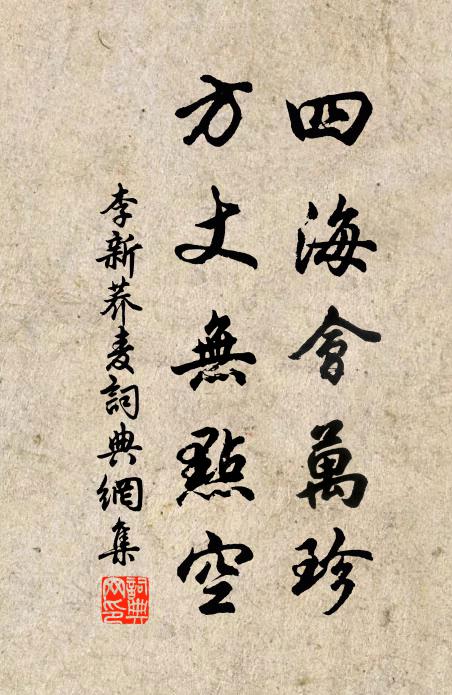 四海會萬珍
方丈無點空
李新荞麦詞典網集
詞典網印